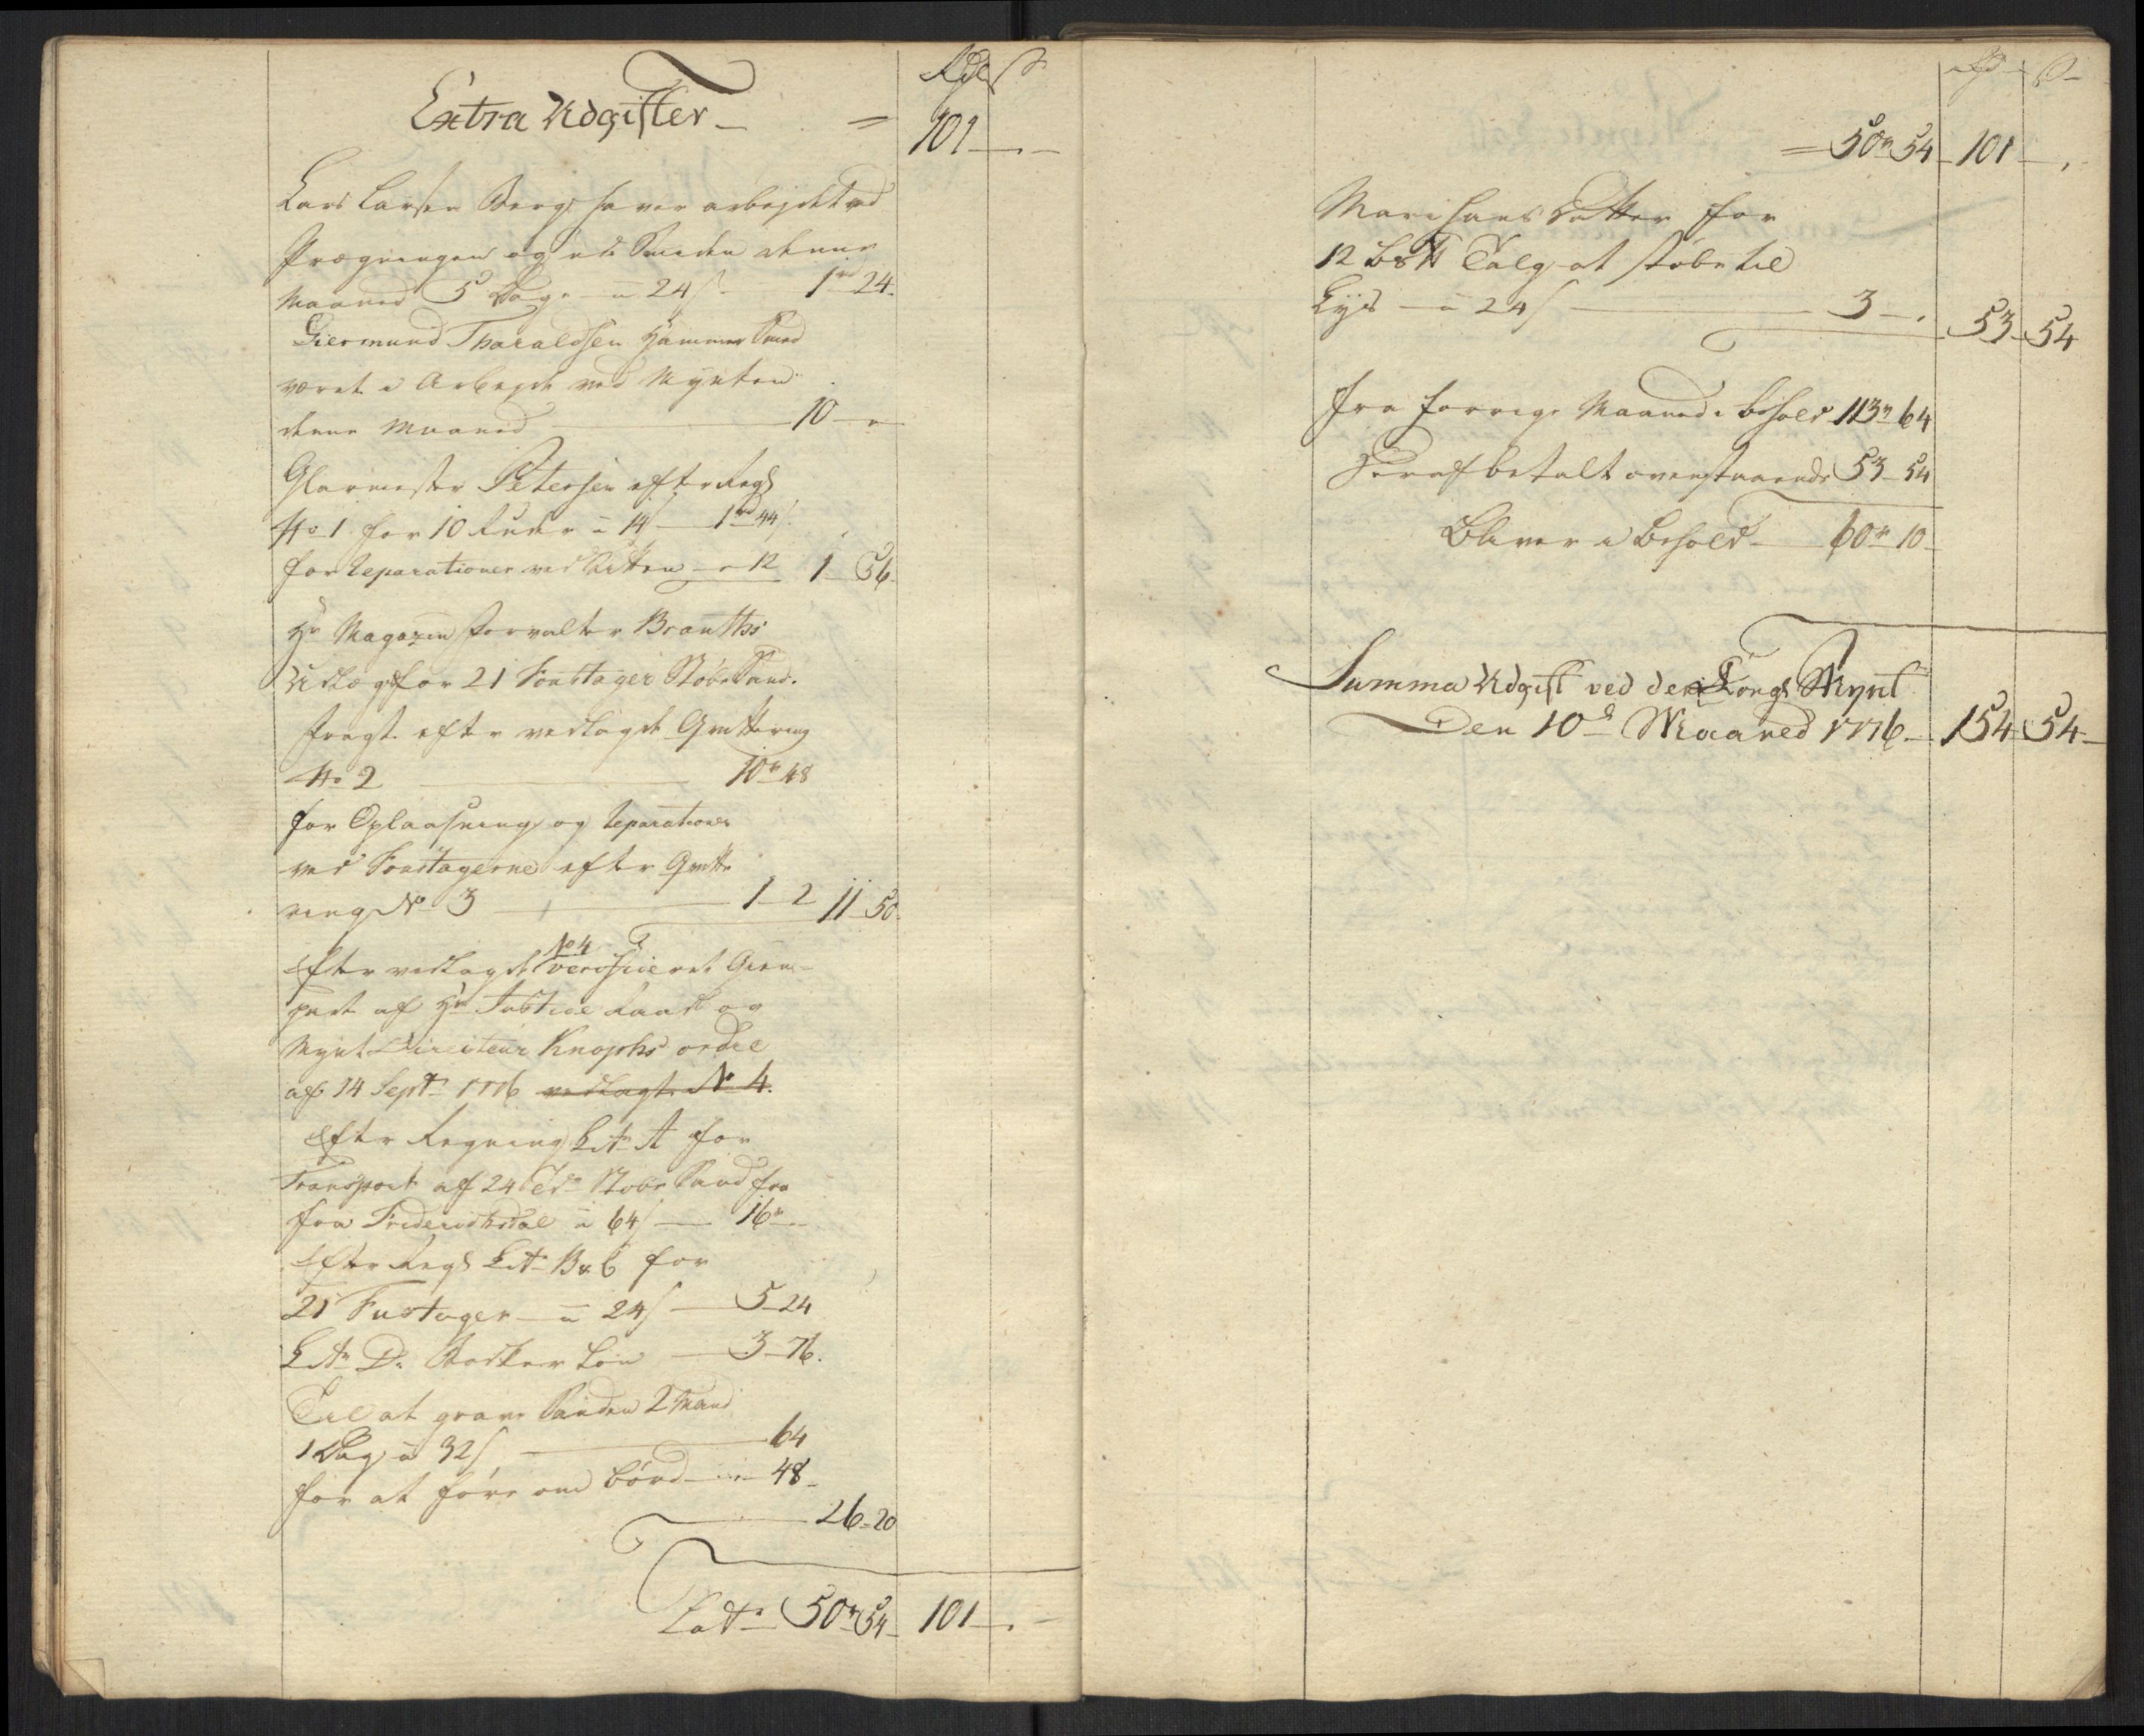 Rdlr ß
Extra Udgifter = 101 — . —
Lars Larsen Berg haver arbejdet ved
Prægningen og ved Smeden denne
Maaned 5 Dage — a 24 ß — 1 rd 24.
Giermund Tharaldsen Hammer Smed
været i Arbejde ved Mynten
denne Maaned — 10 — "
Glarmester Petersen efter Regs
No 1. for 10 Ruder a 14 ß — 1 rd 44.
for Reparationer ved Hytten — " 12 1 — 56.
Hr Magazin forvalter Brauths
Udlæg for 21 Foustager Støbe Sand.
fragt efter vedlagde Qvittering
No 2 — 10 r 48
for Oplaasning og Reparationer
ved Foustagerne efter Qvitte
ring No 3 — 1 — 2 11 — 50.
No 4
Efter vedlagde verificeret Gien-
part af Hr Justice Raad og
Mynt Directeur Knophs ordre
af 14 Septr 1776 vedlagt No 4.
Efter Regning Litr A for
Transport af 24 Tdr Støbe Sand fra
fra Friderichsdal a 64 ß — 16 r "
Efter Regs Litr B & C for
21 Fustager — a 24 ß — 5 — 24
Litr D. Bødker Løn — 3 — 76.
Til at grave Sanden 2 Mand
1 Dag a 32 ß — 64
for at føre om bord — 48 —
26 — 20
Latr 50 r 54 — 101 — . —
Rd ß
= 50 r 54 — 101 — .
Mari Hans Datter for
12 B℔ Talg at støbe til
Lys — a 24 ß — 3 — . 53 — 54
fra forrige Maaned i behold 113 r 64
Heraf betalt ovenstaaende 53 — 54
Bliver i Behold — 60 r 10 —
Summa Udgift ved den Kongl Mynt
Den 10de Maaned 1776 — 154 — 54 —